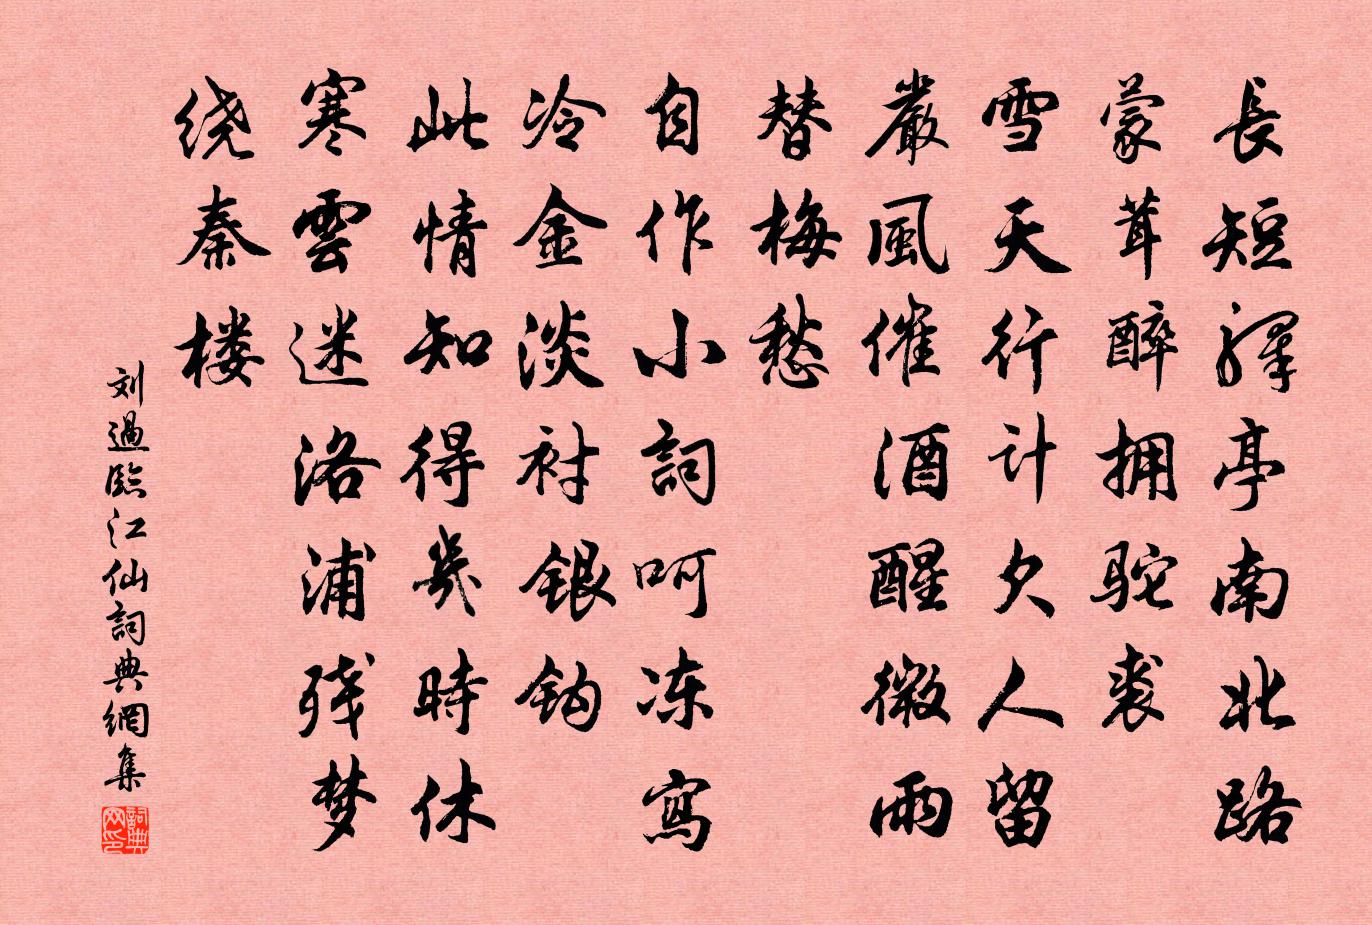 長短驛亭南北路
蒙茸醉拥驼裘
雪天行计欠人留
嚴風催酒醒微雨
替梅愁
自作小詞呵冻寫
冷金淡衬银钩
此情知得幾時休
寒雲迷洛浦残梦
绕秦楼
刘過臨江仙詞典網集
詞典网印